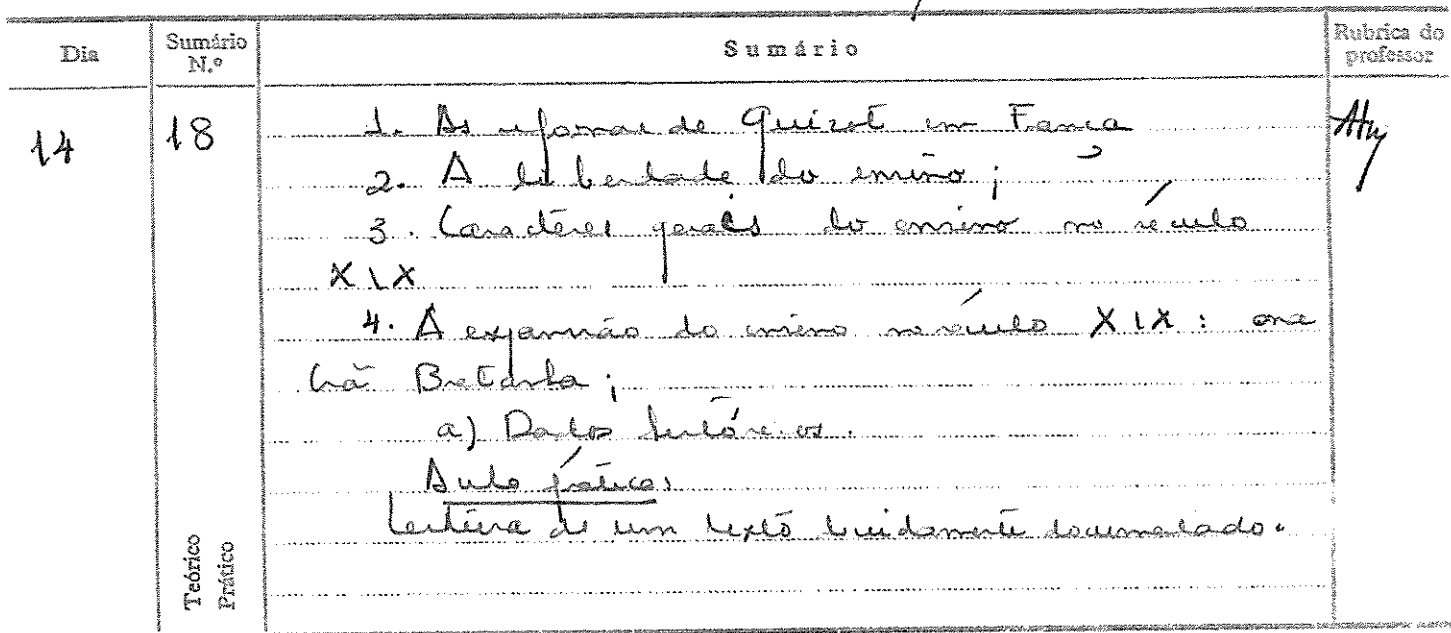 Dia Sumário N.º Sumário Rubrica do professor
14 18 1. As reformas de Guizot em França
2. A liberdade do ensino;
3. Caractéres gerais do ensino no século
XIX
4. A expansão do ensino no século XIX: a
Grã Bretanha;
a) Dados históricos.
Aula prática:
Leitura de um texto devidamente documentado.
Teórico
Prático